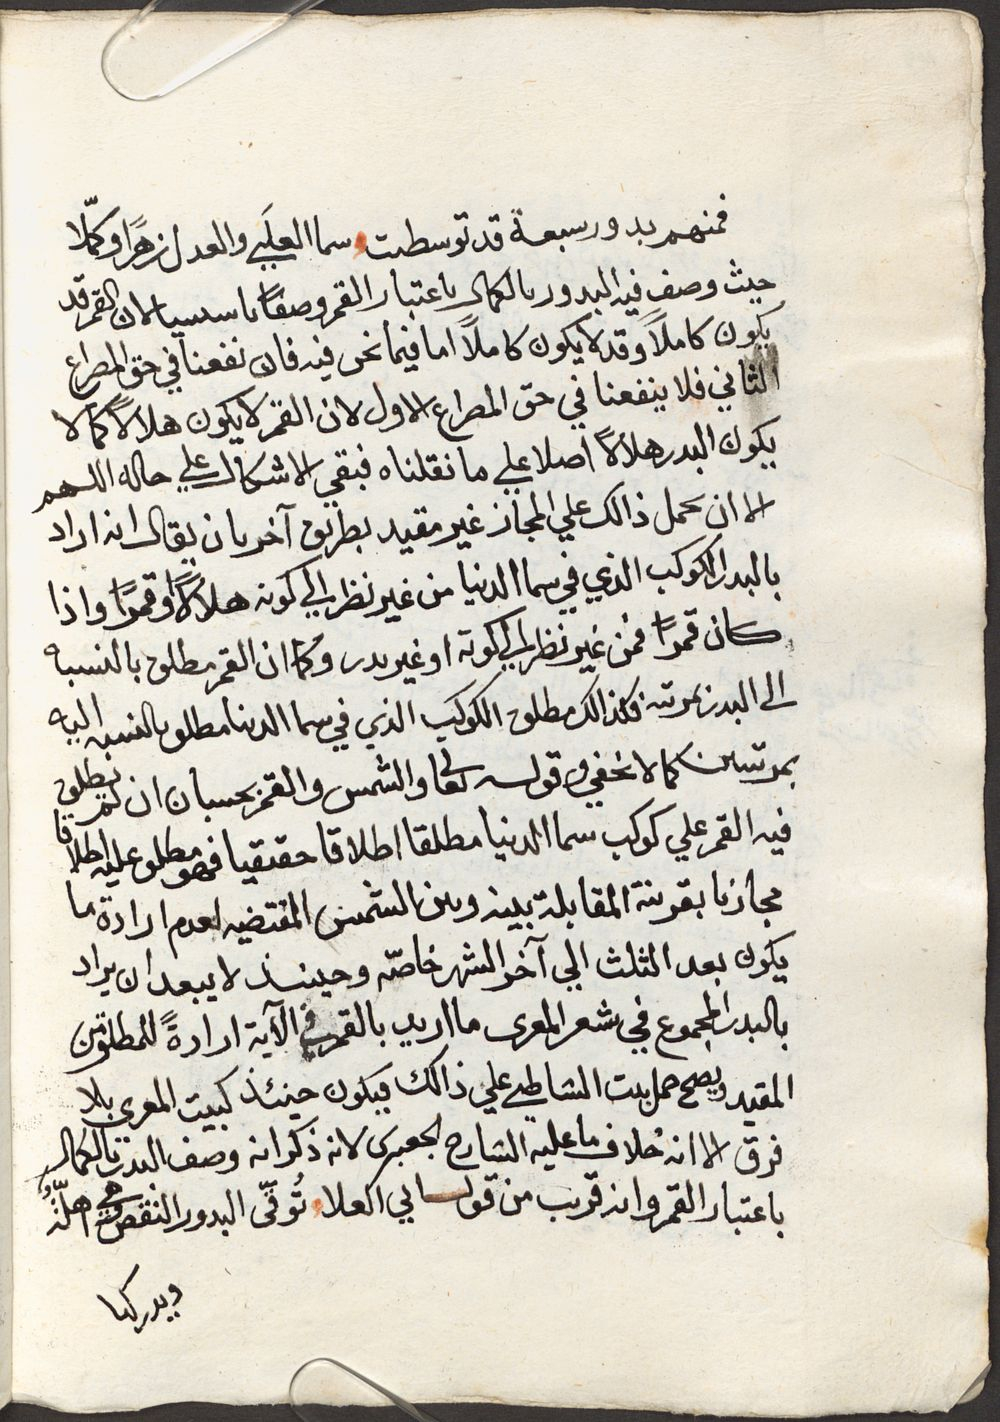 فمنهم بدور سبعة قد توسطت سما العلي والعدل زهرًا وكمّلا
حيث وصف فيه البدور بالكمال باعتبار القمر وصفًا تاسيسيا لان القمر قد
يكون كاملاً وقد لا يكون كاملاً اما فيما نحن فيه فان نفعنا في حق المصراع
الثاني فلا ينفعنا في حق المصراع الاول لان القمر لا يكون هلالاً كما لا
يكون البدر هلالاً اصلا علي ما نقلناه فبقي الاشكال علي حاله اللهم
الا ان يحمل ذالك علي المجاز غير مقيد بطريق آخر بان يقال انه اراد
بالبدر الكوكب الذي في سما الدنيا من غير نظر الي كونه هلالاً او قمرًا واذا
كان قمرًا فمن غير نظر الي كونه او غير بدر وكما ان القمر مطلق بالنسبه
الي البدر بمرتبه فكذالك مطلق الكوكب الذي في سما الدنيا مطلق بالنسبه اليه
بمرتبتين كما لا يخفي وقوله تعالي والشمس والقمر بحسبان ان لم يطلق
فيه القمر علي كوكب سما الدنيا مطلقا اطلاقا حقيقيا فهو مطلق عليه اطلاقا
مجازيا بقرينة المقابلة بينه وبين الشمس المقتضيه لعدم ارادة ما
يكون بعد الثلث الي آخر الشهر خاصّه وحينئذ لا يبعد ان يراد
بالبدر المجموع في شعر المعرى ما اريد بالقمر في الآية ارادةً للمطلق من
المقيد ويصح حمل بيت الشاطبي علي ذالك فيكون حينئذ كبيت المعرى بلا
فرق الا انه خلاف ما عليه الشارح الجعبرى لانه ذكر انه وصف البدر بالكمال
باعتبار القمر وانه قريب من قول ابي العلا تُوقّى البدور النقص وهي اهلّةُ و
ويدركها